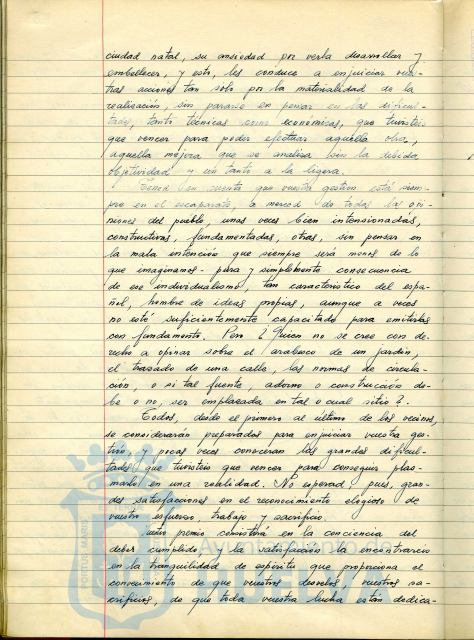 ciudad natal, su ansiedad por verla desarrollar y
embellecer, y esto, les conduce a enjuiciar vues-
tras acciones tan solo por la materialidad de la
realización, sin pararse en pensar en las dificul-
tades, tanto técnicas como económicas, que tuvisteis
que vencer para poder efectuar aquella obra,
aquella mejora que se analiza sin la debida
objetividad y un tanto a la ligera.
Tened en cuenta que vuestra gestión está siem-
pre en el escaparate, a merced de todas las opi-
niones del pueblo, unas veces bien intensionadas,
constructivas, fundamentadas, otras, sin pensar en
la mala intención que siempre será menos de lo
que imaginamos - pura y simplemente consecuencia
de ese individualismo, tan característico del espa-
ñol, hombre de ideas propias, aunque a veces
no esté suficientemente capacitado para emitirlas
con fundamento. Pero ¿Quien no se cree con de-
recho a opinar sobre el arabesco de un jardín,
el trazado de una calle, las normas de circula-
ción, o si tal fuente, adorno o construcción de-
be o no, ser emplazada en tal o cual sitio?.
Todos, desde el primero al último de los vecinos,
se considerarán preparados para enjuiciar vuestra ges-
tión y pocas veces conocerán las grandes dificul-
tades que tuvisteis que vencer para conseguir plas-
marlo en una realidad. No esperad, pues, gran-
des satisfacciones en el reconocimiento elogioso de
vuestro esfuerzo, trabajo y sacrificio.
premio consistirá en la conciencia del
deber cumplido y la satisfacción la encontrareis
en la tranquilidad de espíritu que proporciona el
conocimiento de que vuestros desvelos, vuestros sa-
crificios, de que toda vuestra lucha están dedica-
PORTUS MAGNUS
Ayuntamiento